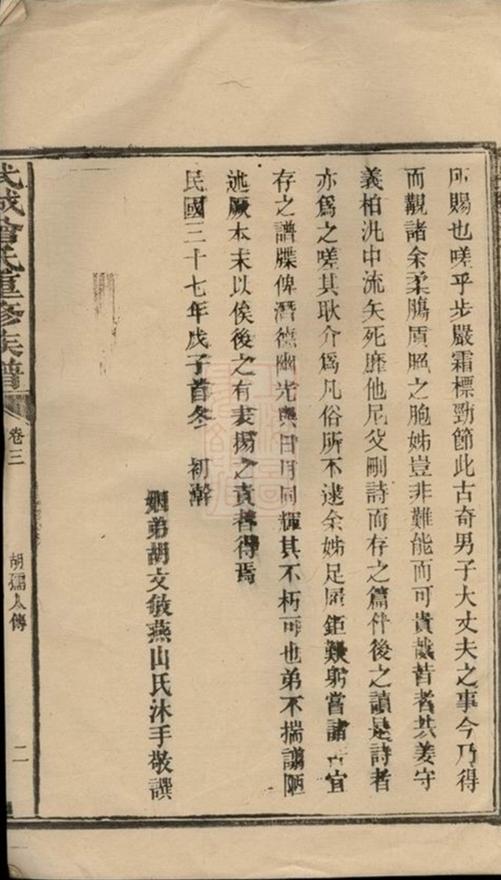 所賜也嗟乎步嚴霜標勁節此古奇男子大丈夫之事今乃得
而覯諸余柔腸質臨之胞姊豈非難能而可貴哉昔者共姜守
義柏汎中流矢死靡他尼父刪詩而存之篇件後之讀是詩者
亦爲之嗟其耿介爲凡俗所不逮余姊足履鉅艱躬嘗諸宜
存之譜牒俾潛德幽光與日月同輝其不朽可也弟不揣譾陋
述厥本末以俟後之有表揚之責者得焉
民國三十七年戊子首冬 初澣
姻弟胡文敏燕山氏沐手敬譔
武城曾氏重修族譜
卷三
胡孺人傳
二